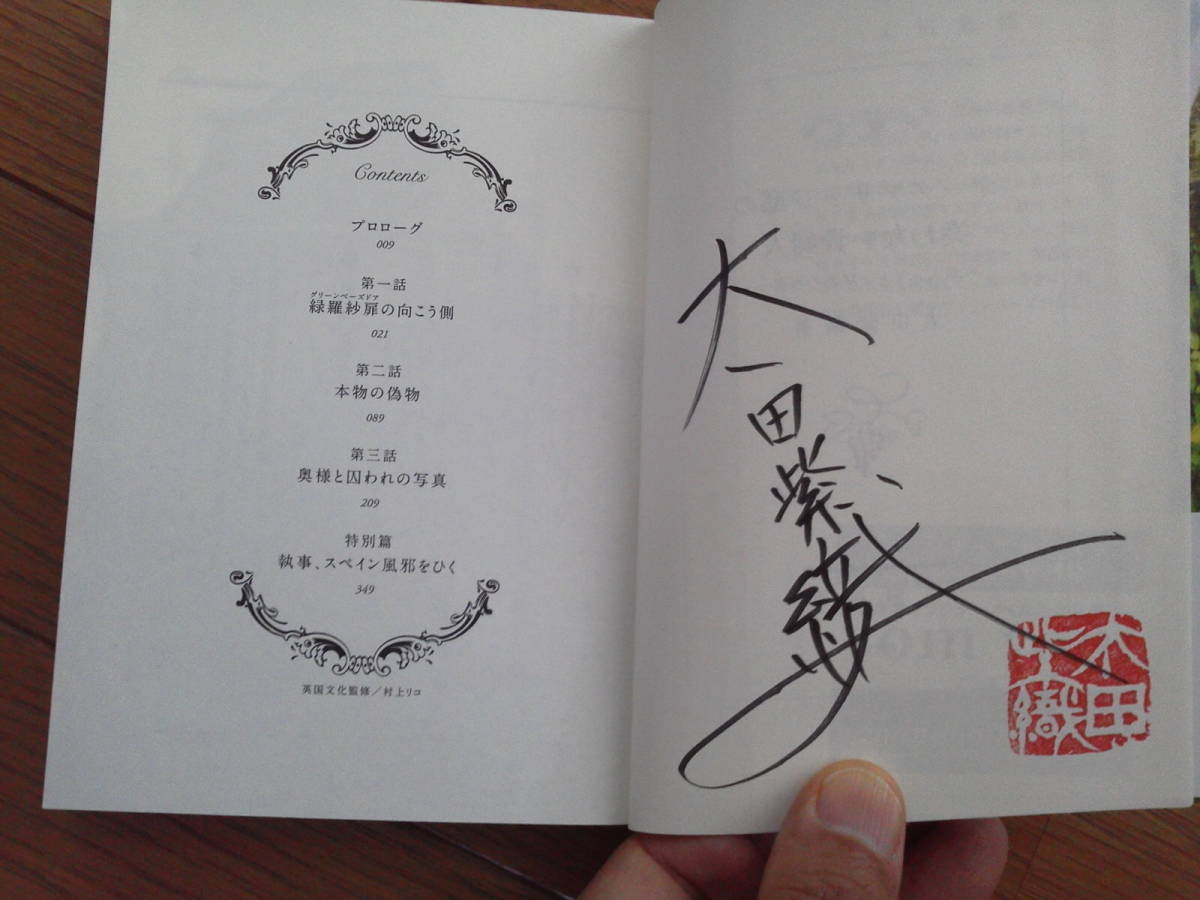 Contents
プロローグ
009
第一話
グリーンベーズドア
緑羅紗扉の向こう側
021
第二話
本物の偽物
089
第三話
奥様と囚われの写真
209
特別篇
執事、スペイン風邪をひく
349
英国文化監修／村上リコ
太田紫織
太田紫織